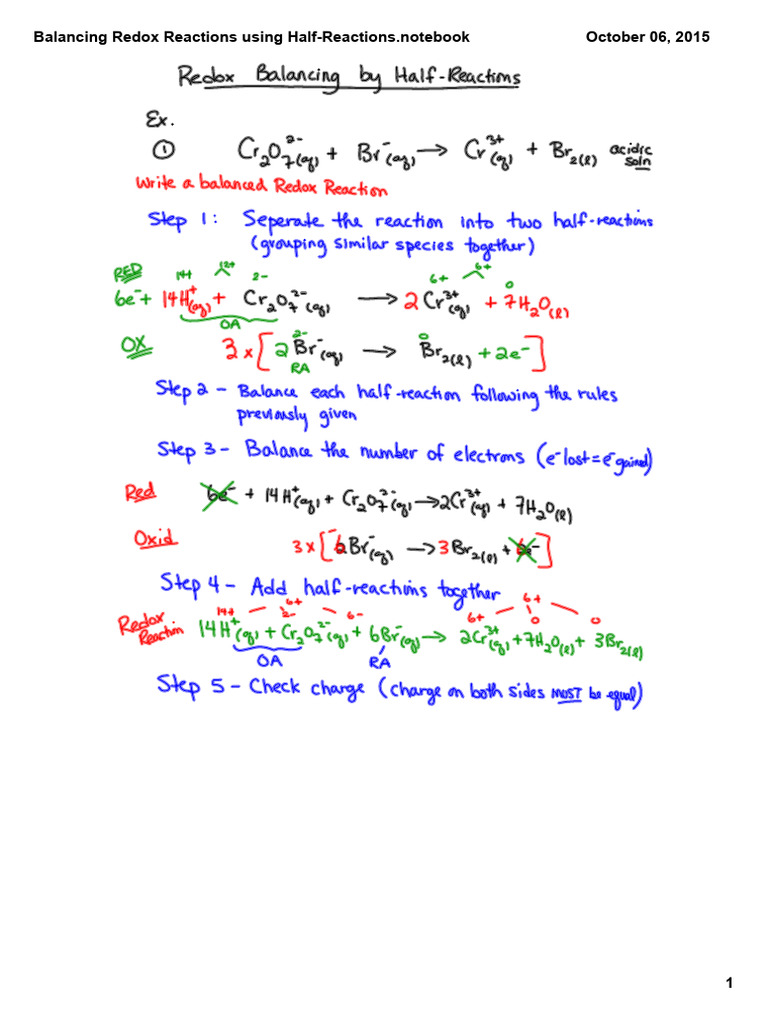 Balancing Redox Reactions using Half-Reactions.notebook
October 06, 2015
Redox Balancing by Half-Reactions
Ex.
① Cr₂O₇²⁻(aq) + Br⁻(aq) → Cr³⁺(aq) + Br₂(l) acidic soln
Write a balanced Redox Reaction
Step 1: Seperate the reaction into two half-reactions
(grouping similar species together)
RED 14+ 12+ 2- 6+ 6+ 0
6e⁻ + 14H⁺(aq) + Cr₂O₇²⁻(aq) → 2Cr³⁺(aq) + 7H₂O(l)
OA
2- 0
OX 3 x [2Br⁻(aq) → Br₂(l) + 2e⁻]
RA
Step 2 - Balance each half-reaction following the rules
previously given
Step 3 - Balance the number of electrons (e⁻ lost = e⁻ gained)
Red 6e⁻ + 14H⁺(aq) + Cr₂O₇²⁻(aq) → 2Cr³⁺(aq) + 7H₂O(l)
Oxid 3 x [6Br⁻(aq) → 3Br₂(l) + 6e⁻]
Step 4 - Add half-reactions together
14+ 6+ 2- 6- 6+ 6+ 0 0
Redox Reaction 14H⁺(aq) + Cr₂O₇²⁻(aq) + 6Br⁻(aq) → 2Cr³⁺(aq) + 7H₂O(l) + 3Br₂(l)
OA RA
Step 5 - Check charge (charge on both sides MUST be equal)
1